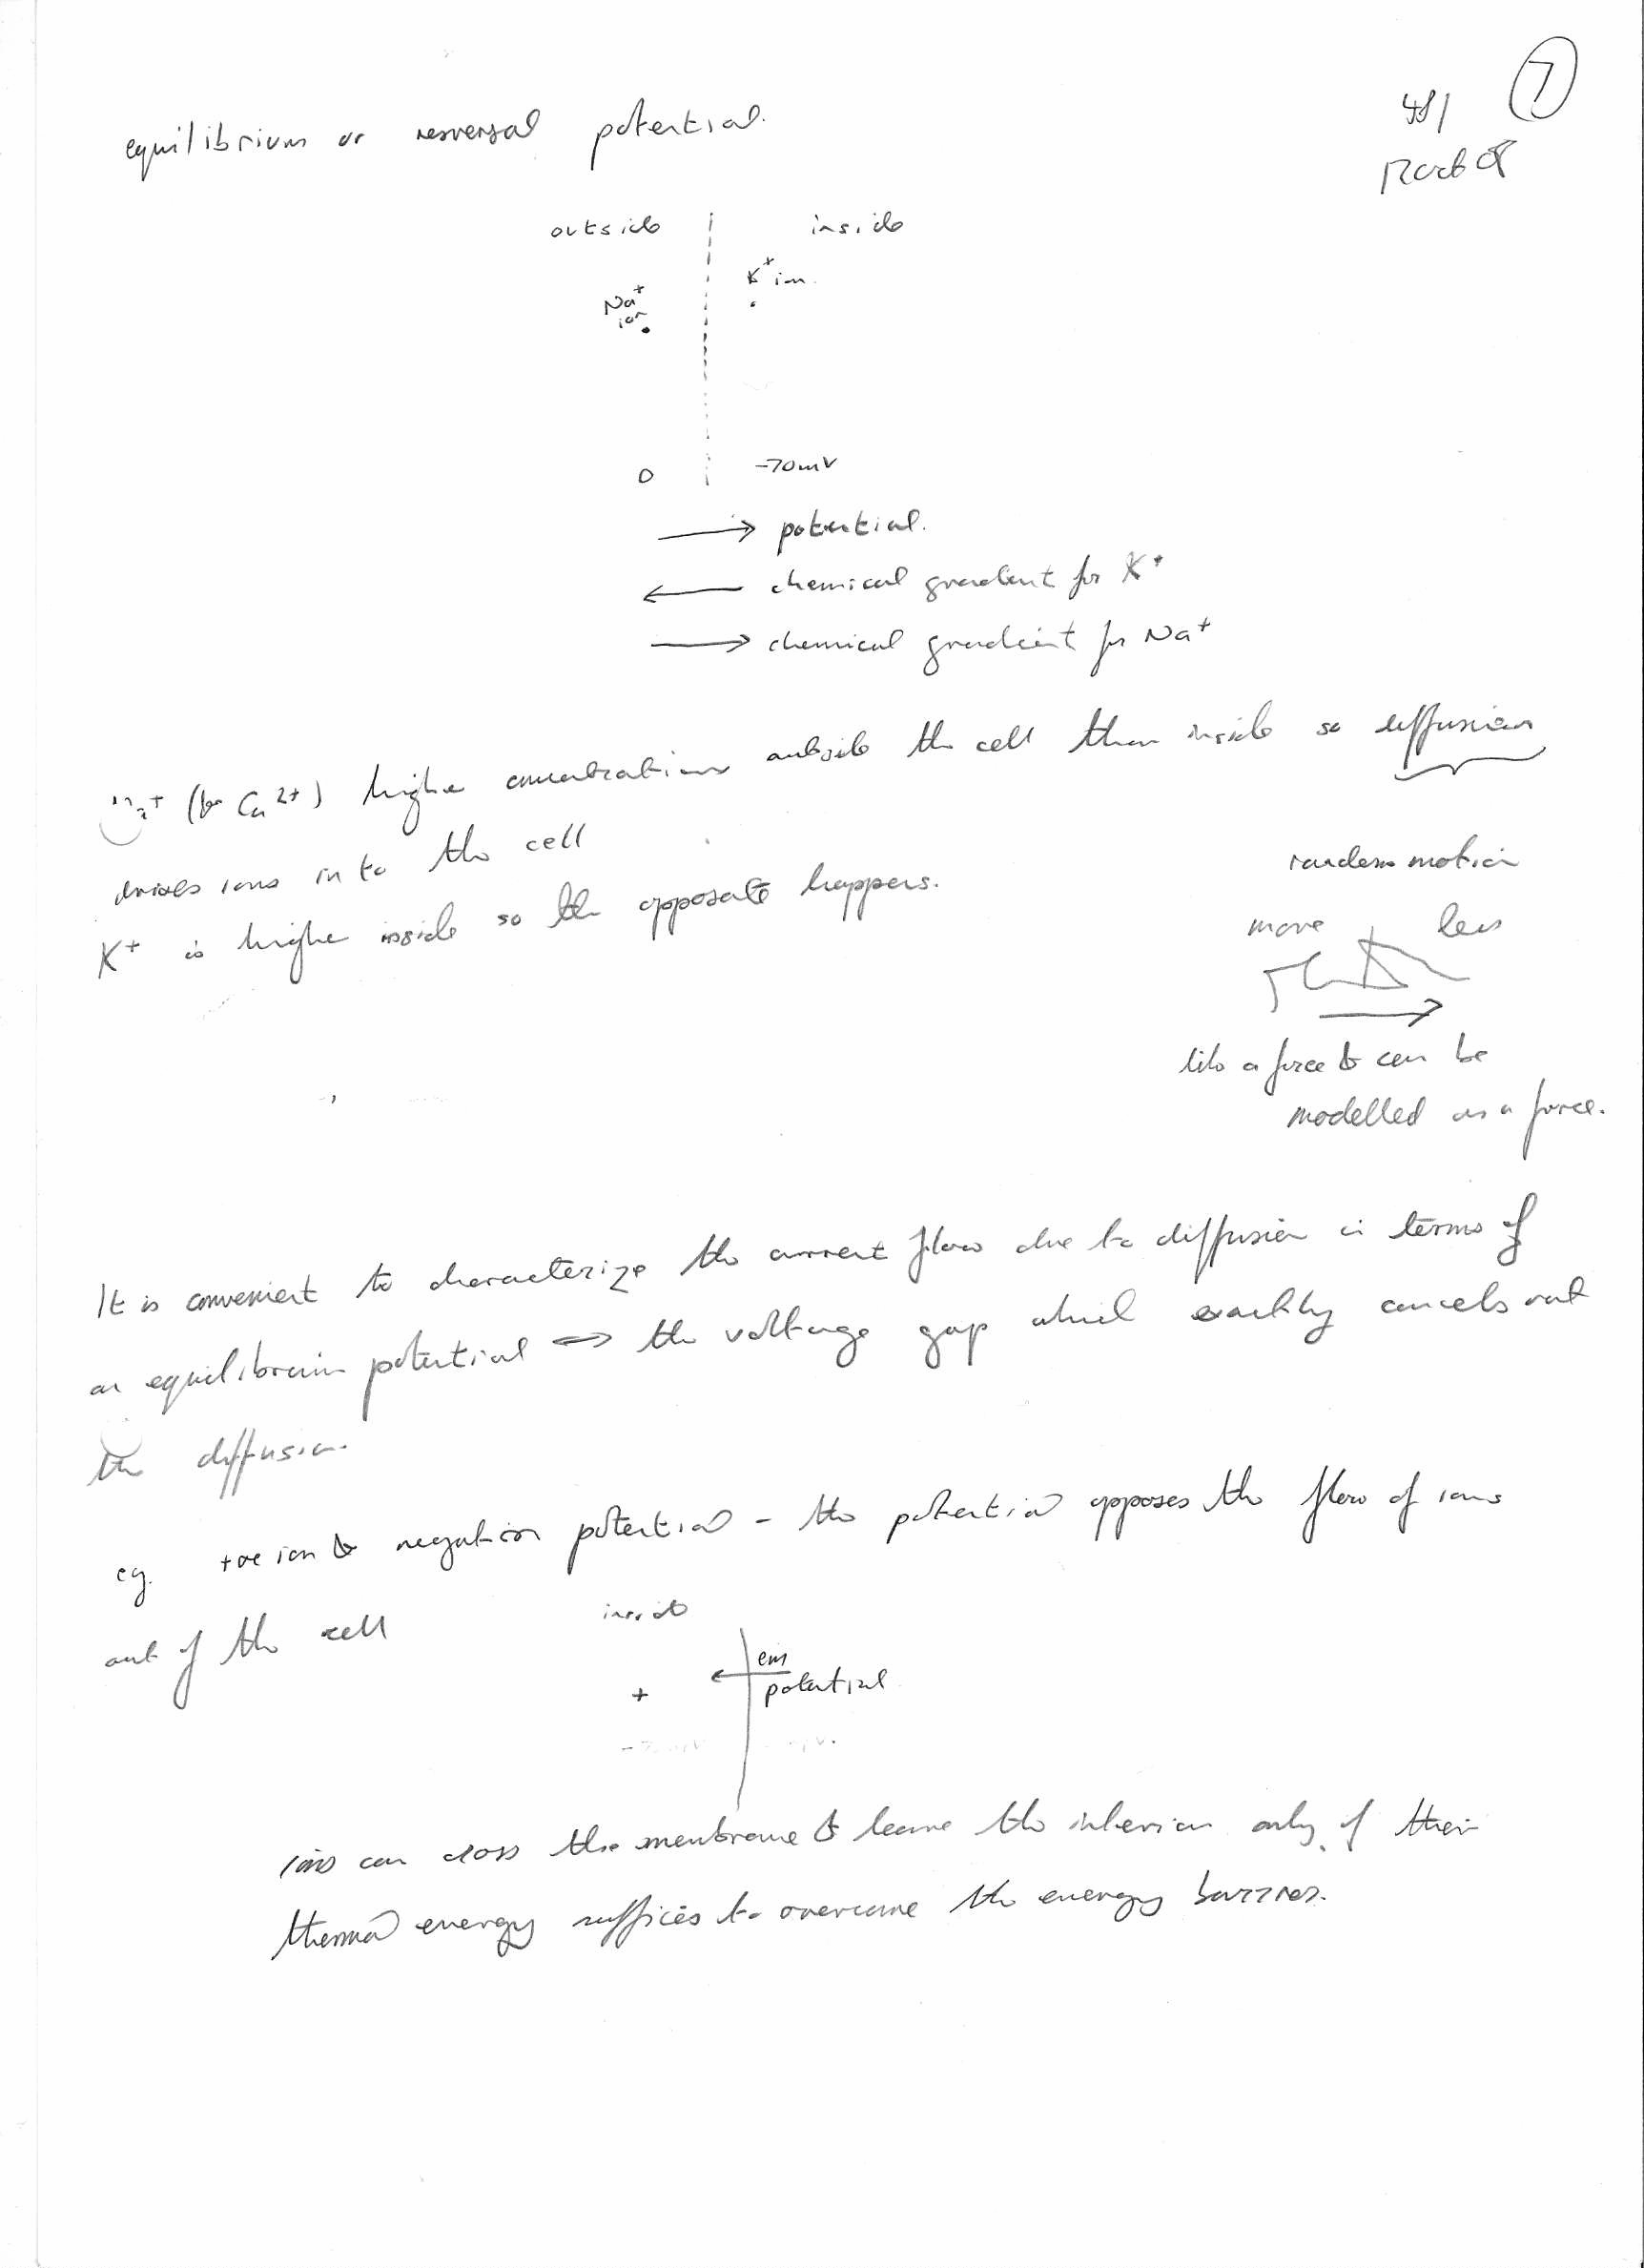 7
equilibrium or resversal potential.
outside inside
K+ ion.
Na+
ion
0 -70mV
→ potential.
← chemical gradient for K+
→ chemical gradient for Na+
Na+ (& Ca2+) higher concentrations outside the cell than inside so diffusion
drives ions into the cell
K+ is higher inside so the opposate happens.
random motion
more less
→
like a force & can be
modelled as a force.
It is convenient to characterize the current flow due to diffusion in terms of
an equilibrium potential ⇔ the voltage gap which exactly cancels out
the diffusion.
eg. +ve ion & negation potential - the potential opposes the flow of ions
out of the cell
inside
em
+ potential
ions can cross the membrane & leave the interior only if their
thermal energy suffices to overcome the energy barrier.